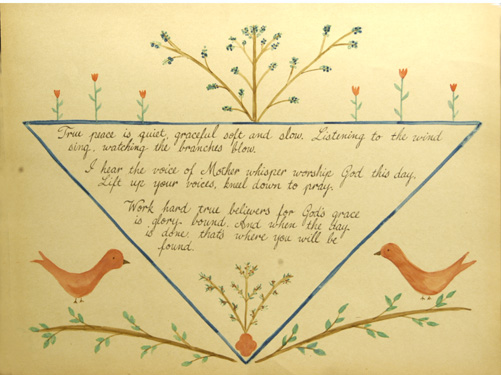 True peace is quiet, graceful soft and slow. Listening to the wind
sing, watching the branches blow.
I hear the voice of Mother whisper worship God this day.
Lift up your voices, kneel down to pray.
Work hard true believers for God's grace
is glory bound. And when the day
is done, thats where you will be
found.